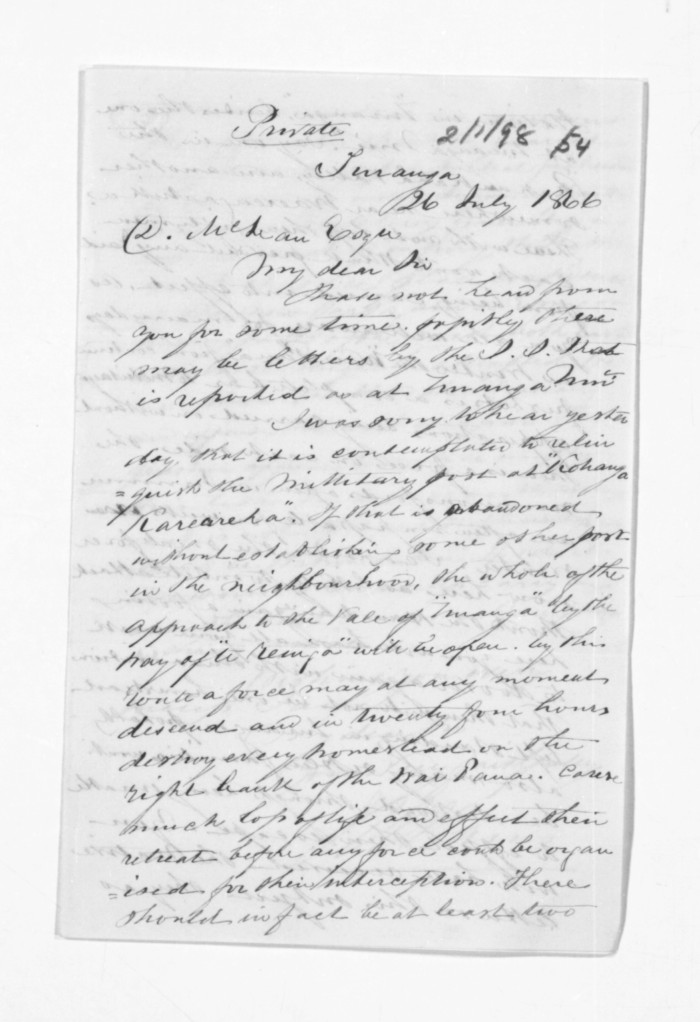 Private
2/1/98 54
Turanga
26 July 1866
D. McLean Esqre
My dear Sir
I have not heard from
you for some time. possibly there
may be letters by the S. S.
is reported as at Turanga
I was sorry to hear yester
day, that it is contemplated to relin
=quish the Millitary post at "Kohanga
Kareareka". If that is abandoned
without establishing some other post
in the neighbourhood, the whole of the
approach to the Vale of "Turanga" by the
way of "te Reinga" will be open. by this
route a force may at any moment
descend and in twenty four hours
destroy every homestead on the
right bank of the Wai Paoa. cause
much loss of life and effect their
retreat before any force could be organ
=ised for their interception. There
should in fact be at least two